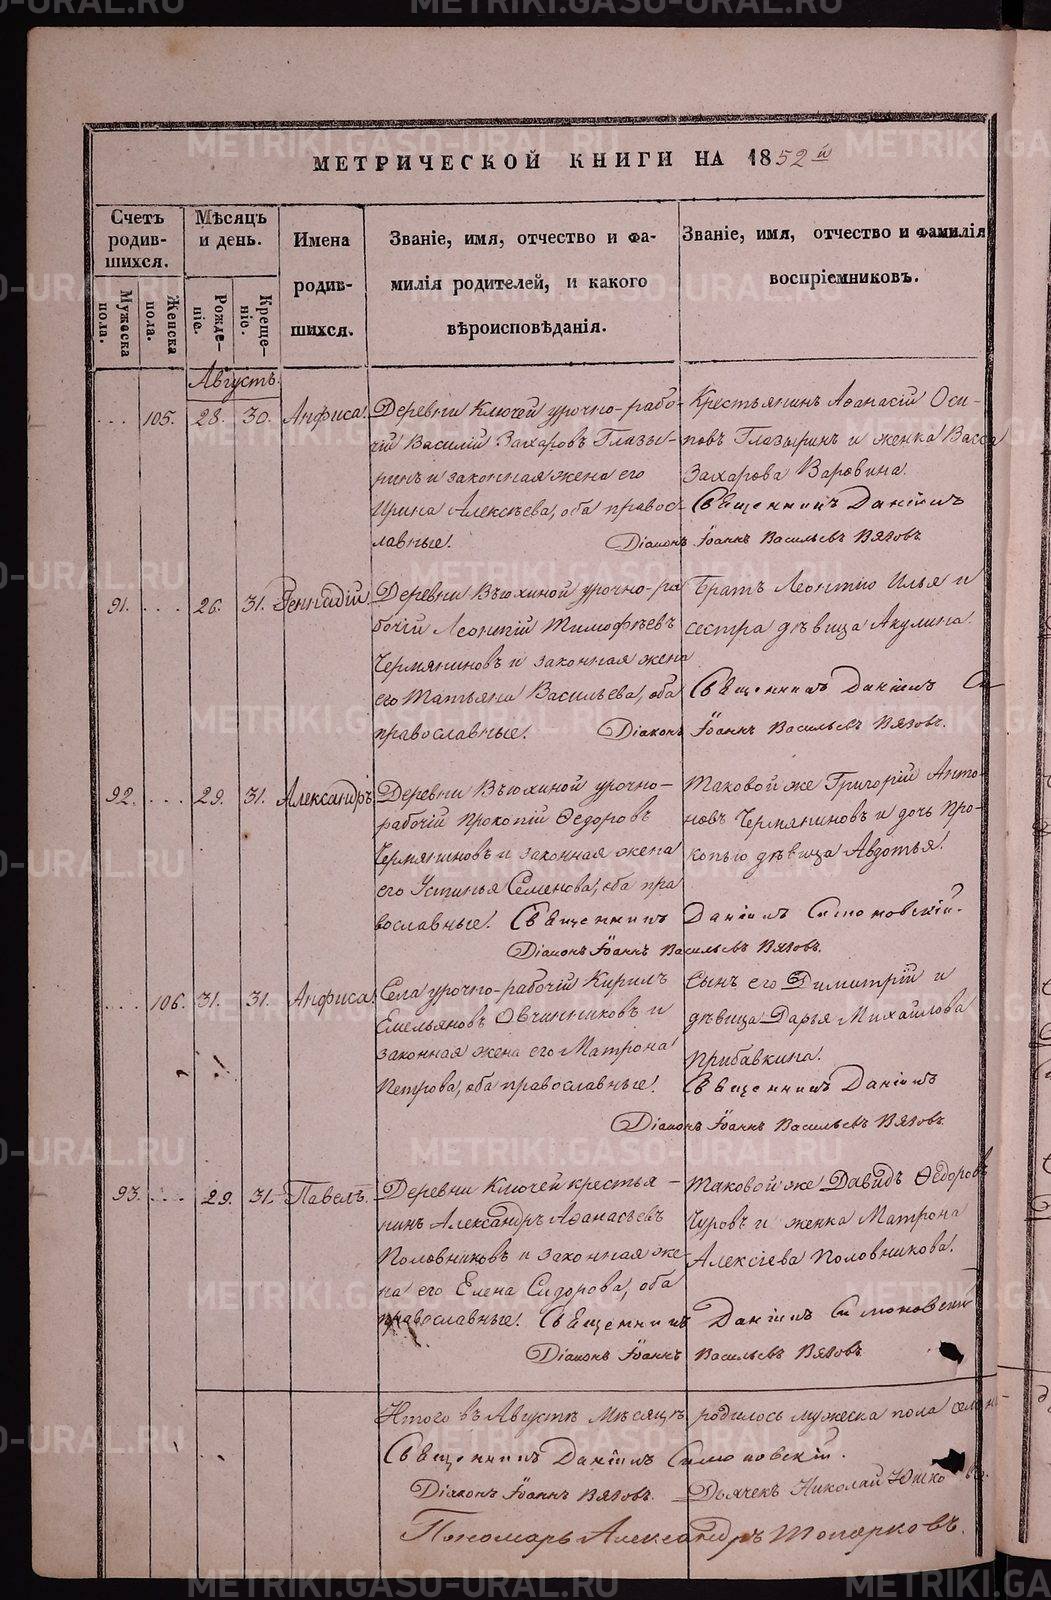 МЕТРИЧЕСКОЙ КНИГИ НА 1852й
Счетъ родив-шихся.
Мѣсяцъ и день.
Имена родив-шихся.
Званіе, имя, отчество и фа-
милія родителей, и какого
вѣроисповѣданія.
Званіе, имя, отчество и фамилія
воспріемниковъ.
Мужеска пола.
Женска пола.
Рожде-ніе.
Креще-ніе.
Августъ.
... 105. 28. 30. Анфиса.
Деревни Ключей урочно-рабо-
чій Василій Захаровъ Глазы-
ринъ и законная жена его
Ирина Алексѣева, оба правос-
лавные.
Крестьянинъ Аѳанасій Оси-
повъ Глазыринъ и женка Васса
Захарова Варовина.
Священникъ Даніилъ
Діаконъ Іоаннъ Васильевъ Вяговъ.
91. ... 26. 31. Геннадій
Деревни Вьюхиной урочно-ра
бочій Леонтій Тимофѣевъ
Чермяниновъ и законная жена
его Татьяна Васильева, оба
православные.
Братъ Леонтію Илья и
сестра дѣвица Акулина.
Священникъ Даніилъ Си
Діаконъ Іоаннъ Васильевъ Вяговъ.
92. ... 29. 31. Александръ
Деревни Вьюхиной урочно-
рабочій Прокопій Ѳедоровъ
Чермяниновъ и законная жена
его Устинья Семенова, оба пра
вославные.
Таковой же Григорій Анто-
новъ Чермяниновъ и дочь Про-
копью дѣвица Авдотья.
Священникъ Даніилъ Симоновскій.
Діаконъ Іоаннъ Васильевъ Вяговъ.
... 106. 31. 31. Анфиса.
Села урочно-рабочій Кирилъ
Емельяновъ Овчинниковъ и
законная жена его Матрона
Петрова, оба православные.
Сынъ его Димитрій и
дѣвица Дарья Михайлова
Прибавкина.
Священникъ Даніилъ
Діаконъ Іоаннъ Васильевъ Вяговъ.
93. ... 29. 31. Павелъ.
Деревни Ключей крестья-
нинъ Александръ Аѳанасьевъ
Половниковъ и законная же-
на его Елена Сидорова, оба
православные.
Таковой же Давидъ Ѳедоровъ
Чуровъ и женка Матрона
Алексіева Половникова.
Священникъ Даніилъ Симоновскій
Діаконъ Іоаннъ Васильевъ Вяговъ.
Итого въ Августѣ мѣсяцѣ родилось мужеска пола
Священникъ Даніилъ Симоновскій.
Діаконъ Іоаннъ Вяговъ. Дьячекъ Николай Юшковъ.
Пономарь Александръ Топорковъ.
METRIKI.GASO-URAL.RU